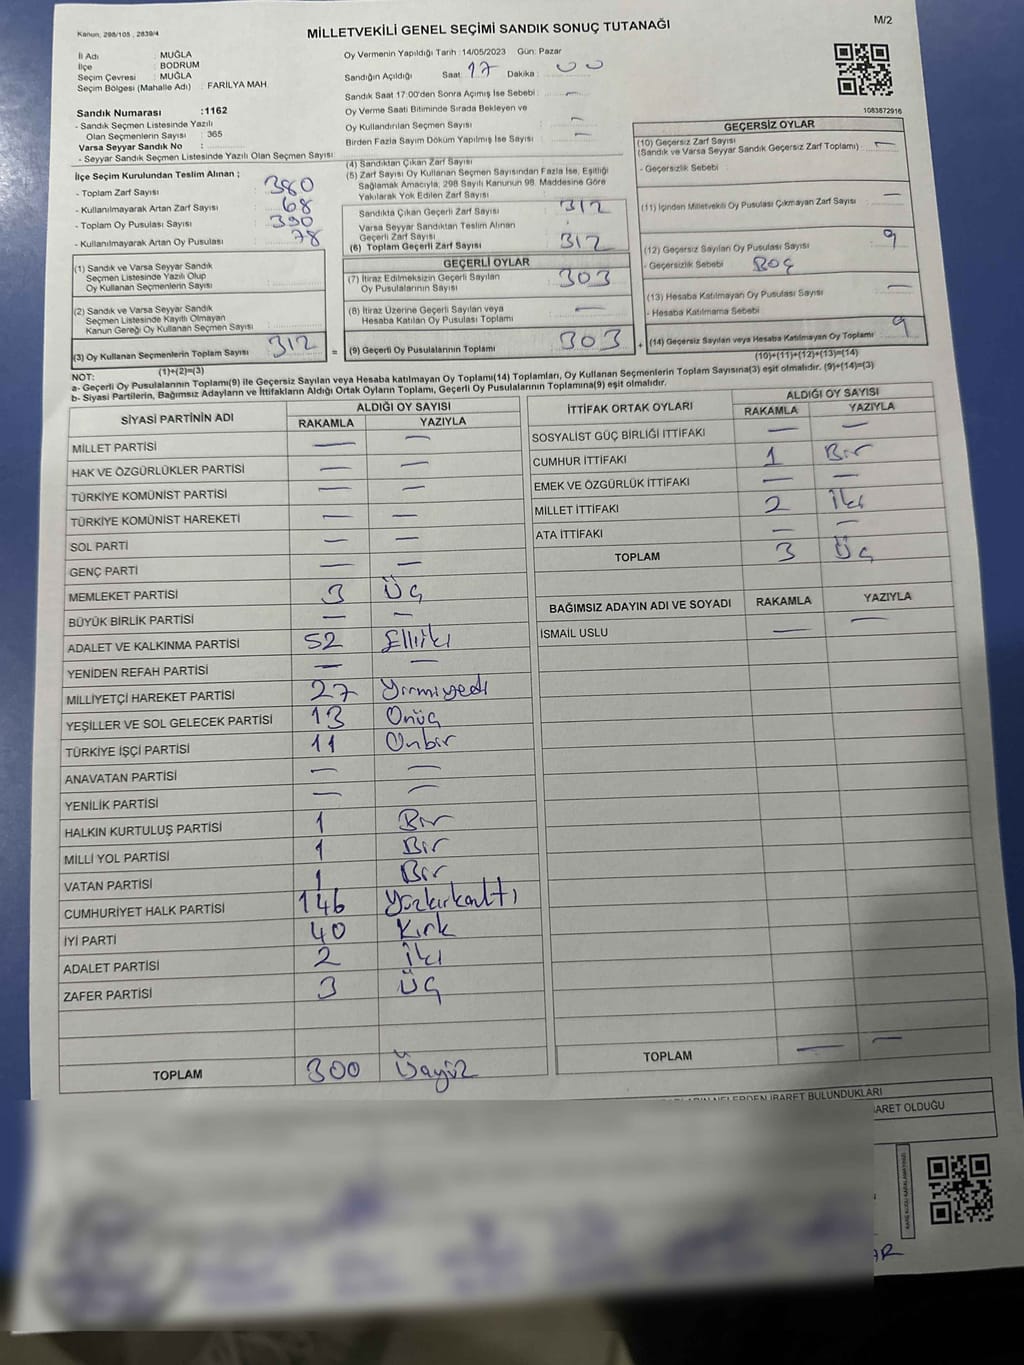 Kanun: 298/105 , 2839/4
MİLLETVEKİLİ GENEL SEÇİMİ SANDIK SONUÇ TUTANAĞI
M/2
İl Adı : MUĞLA
İlçe : BODRUM
Seçim Çevresi : MUĞLA
Seçim Bölgesi (Mahalle Adı) : FARİLYA MAH
Sandık Numarası :1162
- Sandık Seçmen Listesinde Yazılı
Olan Seçmenlerin Sayısı : 365
Varsa Seyyar Sandık No :
- Seyyar Sandık Seçmen Listesinde Yazılı Olan Seçmen Sayısı:
İlçe Seçim Kurulundan Teslim Alınan ;
- Toplam Zarf Sayısı : 380
- Kullanılmayarak Artan Zarf Sayısı : 68
- Toplam Oy Pusulası Sayısı : 390
- Kullanılmayarak Artan Oy Pusulası : 78
(1) Sandık ve Varsa Seyyar Sandık
Seçmen Listesinde Yazılı Olup
Oy Kullanan Seçmenlerin Sayısı :
(2) Sandık ve Varsa Seyyar Sandık
Seçmen Listesinde Kayıtlı Olmayan
Kanun Gereği Oy Kullanan Seçmen Sayısı :
(3) Oy Kullanan Seçmenlerin Toplam Sayısı : 312
(1)+(2)=(3)
Oy Vermenin Yapıldığı Tarih :14/05/2023 Gün: Pazar
Sandığın Açıldığı Saat: 17 Dakika : 00
Sandık Saat 17:00'den Sonra Açımış İse Sebebi : —
Oy Verme Saati Bitiminde Sırada Bekleyen ve
Oy Kullandırılan Seçmen Sayısı : —
Birden Fazla Sayım Döküm Yapılmış İse Sayısı : —
(4) Sandıktan Çıkan Zarf Sayısı :
(5) Zarf Sayısı Oy Kullanan Seçmen Sayısından Fazla İse, Eşitliği
Sağlamak Amacıyla, 298 Sayılı Kanunun 98. Maddesine Göre
Yakılarak Yok Edilen Zarf Sayısı :
Sandıkta Çıkan Geçerli Zarf Sayısı : 312
Varsa Seyyar Sandıktan Teslim Alınan
Geçerli Zarf Sayısı :
(6) Toplam Geçerli Zarf Sayısı : 312
GEÇERLİ OYLAR
(7) İtiraz Edilmeksizin Geçerli Sayılan
Oy Pusulalarının Sayısı : 303
(8) İtiraz Üzerine Geçerli Sayılan veya
Hesaba Katılan Oy Pusulası Toplamı : —
= (9) Geçerli Oy Pusulalarının Toplamı : 303 +
1083872916
GEÇERSİZ OYLAR
(10) Geçersiz Zarf Sayısı
(Sandık ve Varsa Seyyar Sandık Geçersiz Zarf Toplamı) : —
- Geçersizlik Sebebi
(11) İçinden Milletvekili Oy Pusulası Çıkmayan Zarf Sayısı : —
(12) Geçersiz Sayılan Oy Pusulası Sayısı : 9
- Geçersizlik Sebebi BOŞ
(13) Hesaba Katılmayan Oy Pusulası Sayısı : —
- Hesaba Katılmama Sebebi
(14) Geçersiz Sayılan veya Hesaba Katılmayan Oy Toplamı : 9
(10)+(11)+(12)+(13)=(14)
NOT:
a- Geçerli Oy Pusulalarının Toplamı(9) ile Geçersiz Sayılan veya Hesaba katılmayan Oy Toplamı(14) Toplamları, Oy Kullanan Seçmenlerin Toplam Sayısına(3) eşit olmalıdır. (9)+(14)=(3)
b- Siyasi Partilerin, Bağımsız Adayların ve İttifakların Aldığı Ortak Oyların Toplamı, Geçerli Oy Pusulalarının Toplamına(9) eşit olmalıdır.
SİYASİ PARTİNİN ADI ALDIĞI OY SAYISI
RAKAMLA YAZIYLA
MİLLET PARTİSİ — —
HAK VE ÖZGÜRLÜKLER PARTİSİ — —
TÜRKİYE KOMÜNİST PARTİSİ — —
TÜRKİYE KOMÜNİST HAREKETİ — —
SOL PARTİ — —
GENÇ PARTİ — —
MEMLEKET PARTİSİ 3 Üç
BÜYÜK BİRLİK PARTİSİ — —
ADALET VE KALKINMA PARTİSİ 52 Elliiki
YENİDEN REFAH PARTİSİ — —
MİLLİYETÇİ HAREKET PARTİSİ 27 Yirmiyedi
YEŞİLLER VE SOL GELECEK PARTİSİ 13 Onüç
TÜRKİYE İŞÇİ PARTİSİ 11 Onbir
ANAVATAN PARTİSİ — —
YENİLİK PARTİSİ — —
HALKIN KURTULUŞ PARTİSİ 1 Bir
MİLLİ YOL PARTİSİ 1 Bir
VATAN PARTİSİ 1 Bir
CUMHURİYET HALK PARTİSİ 146 Yüzkırkaltı
İYİ PARTİ 40 Kırk
ADALET PARTİSİ 2 İki
ZAFER PARTİSİ 3 Üç
TOPLAM 300 Üçyüz
İTTİFAK ORTAK OYLARI ALDIĞI OY SAYISI
RAKAMLA YAZIYLA
SOSYALİST GÜÇ BİRLİĞİ İTTİFAKI — —
CUMHUR İTTİFAKI 1 Bir
EMEK VE ÖZGÜRLÜK İTTİFAKI — —
MİLLET İTTİFAKI 2 İki
ATA İTTİFAKI — —
TOPLAM 3 Üç
BAĞIMSIZ ADAYIN ADI VE SOYADI RAKAMLA YAZIYLA
İSMAİL USLU — —
TOPLAM — —
NELERDEN İBARET BULUNDUKLARI
BARET OLDUĞU